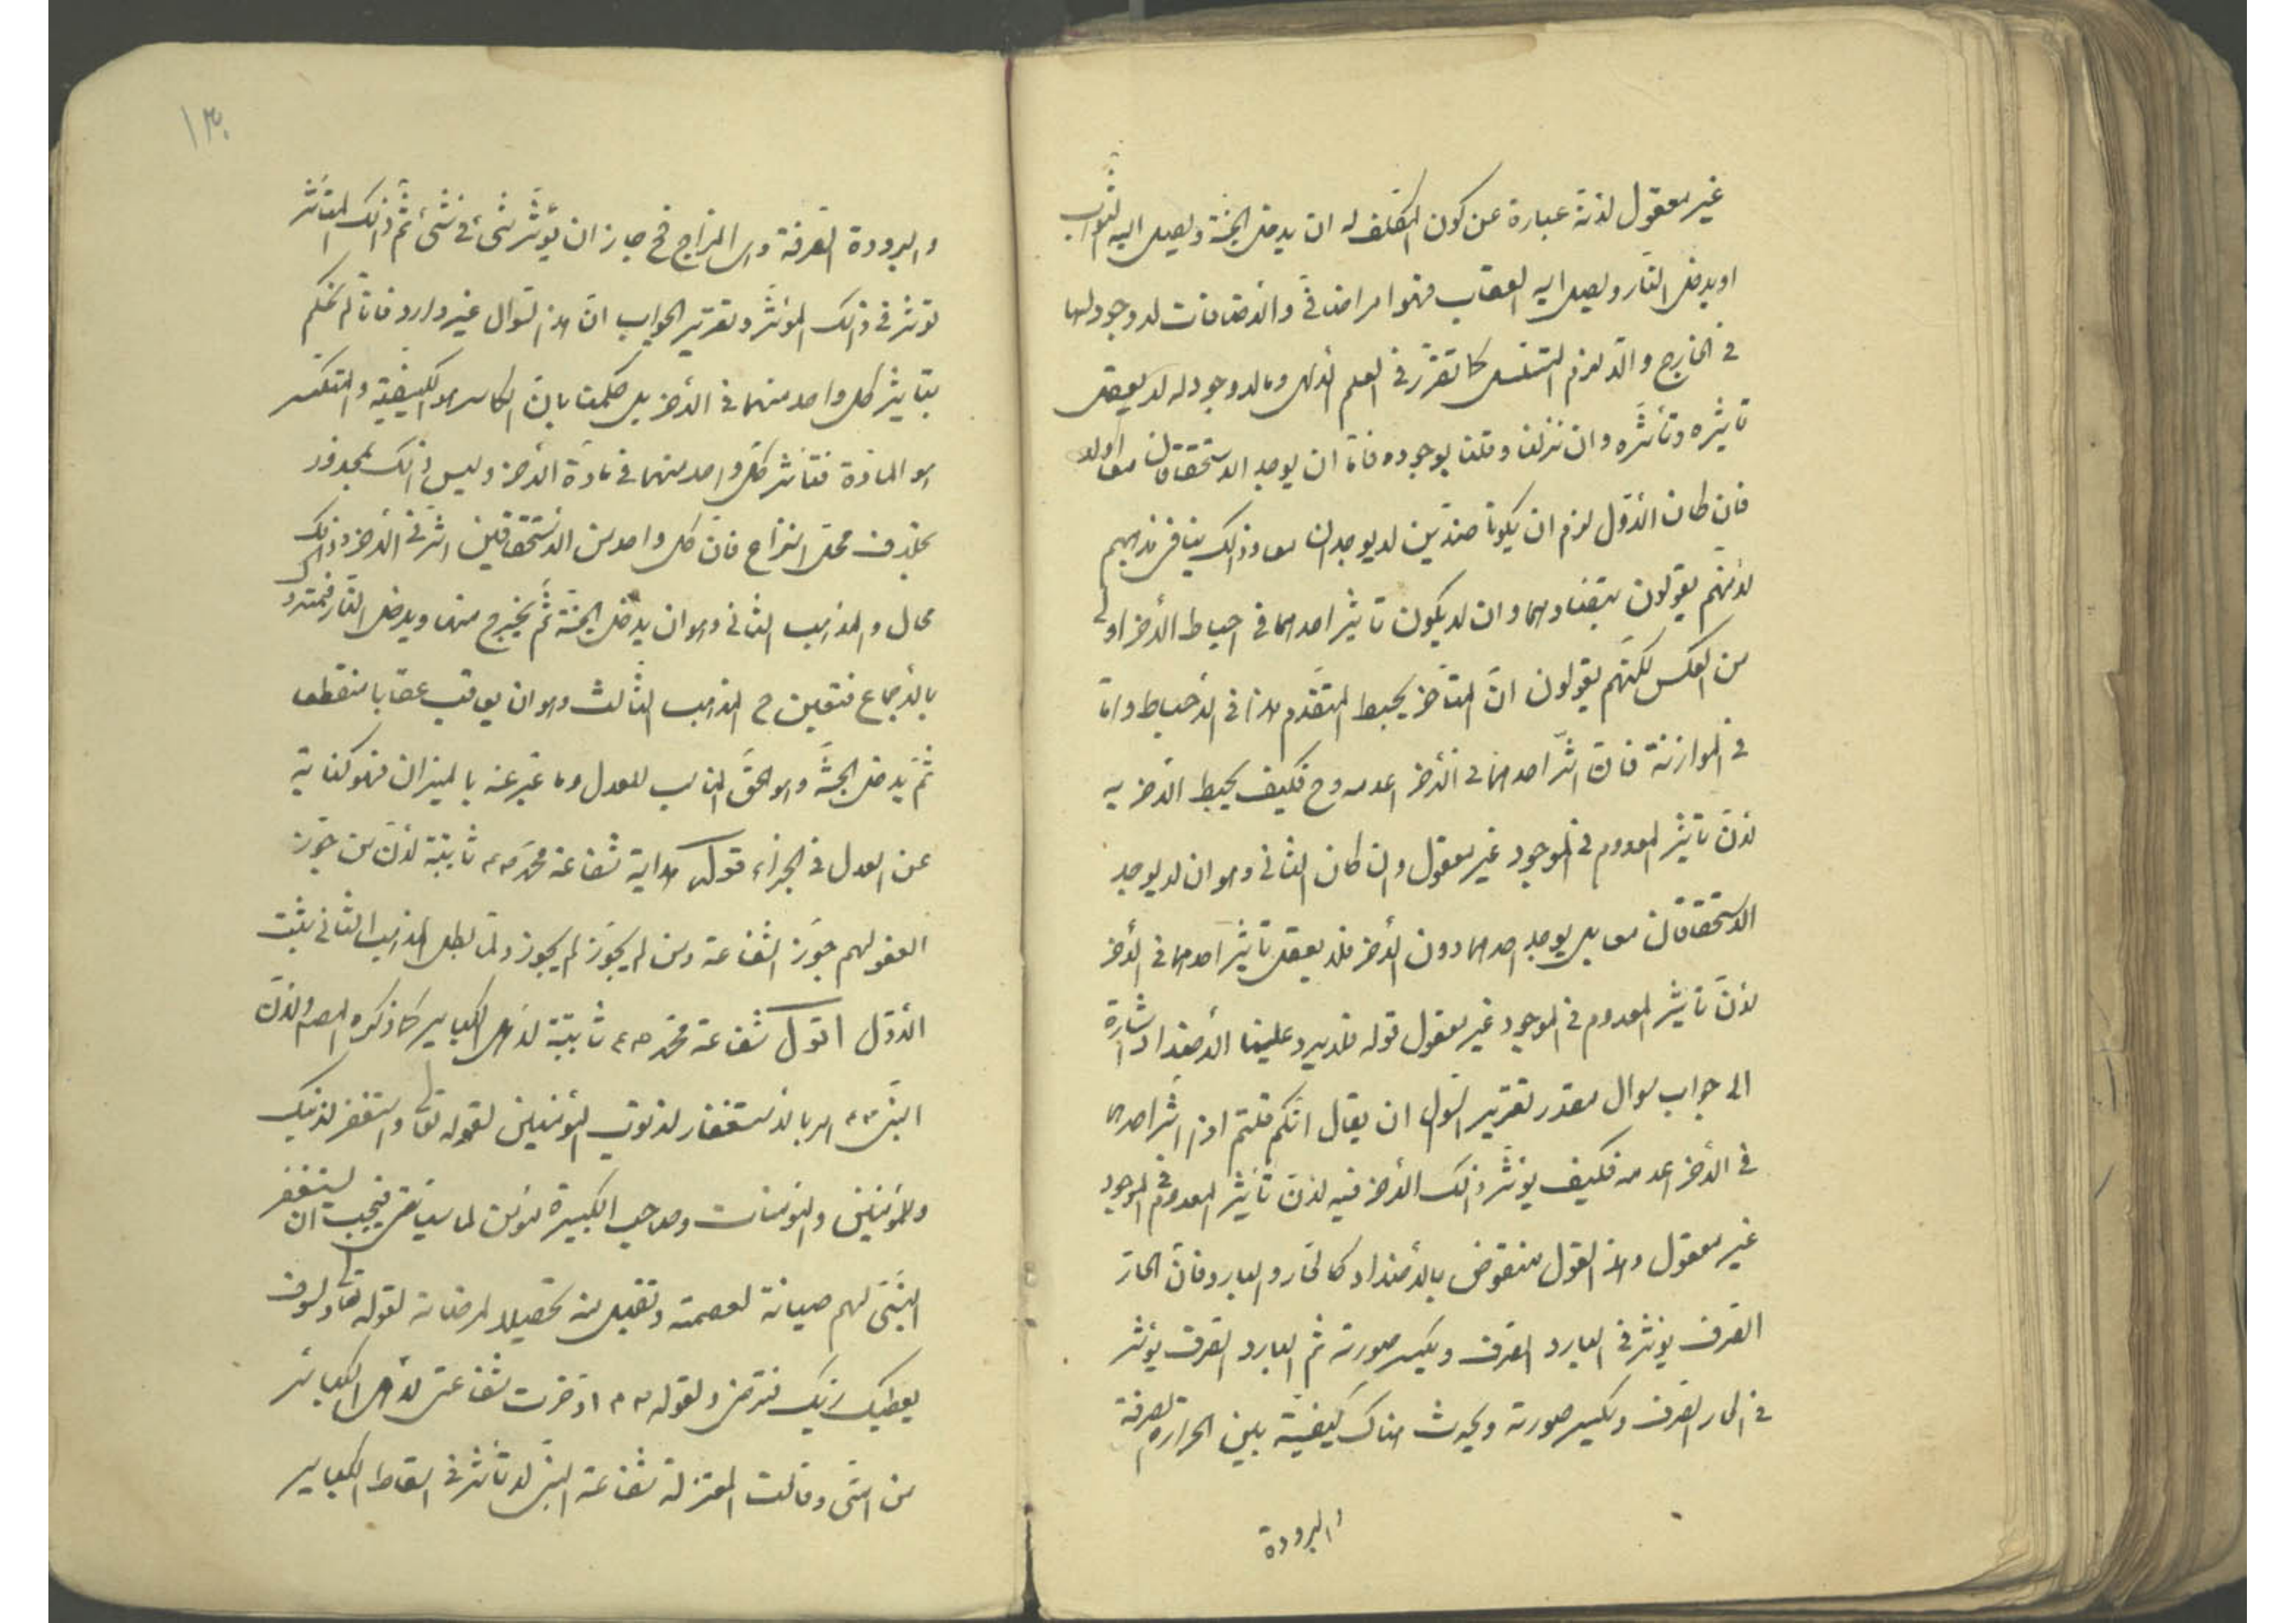 غير معقول لأنه عبارة عن كون المكلف له ان يدخل الجنة ويصل اليه الثواب
او يدخل النار ويصل اليه العقاب فهو امر اضافى والأضافات لا وجود لها
فى الخارج والا لزم التسلسل كما تقرر فى العلم الالهى وما لا وجود له لا يعقل
تأثيره وتأثره وان نزلنا وقلنا بوجوده فاما ان يوجد الاستحقاقان معا اولا
فان كان الأول لزم ان يكونا ضدين لا يوجدان معا وذلك ينافى مذهبهم
لأنهم يقولون بتضادهما وان لا يكون تأثير احدهما فى احباط الأخر اولى
من العكس لكنهم يقولون ان المتأخر يحبط المتقدم هذا فى الأحباط واما
فى الموازنة فان اثر احدهما فى الأخر اعدمه وح فكيف يحبط الأخر به
لأن تأثير المعدوم فى الموجود غير معقول وان كان الثانى وهو ان لا يوجد
الاستحقاقان معا بل يوجد احدهما دون الأخر فلا يعقل تأثير احدهما فى الأخر
لأن تأثير المعدوم فى الموجود غير معقول قوله فلا يرد علينا الأضداد اشارة
الى جواب سوال مقدر تقرير السوال ان يقال انكم قلتم اذا اثر احدهما
فى الأخر اعدمه فكيف يؤثر ذلك الأخر فيه لأن تأثير المعدوم فى الموجود
غير معقول وهذا القول منقوض بالأضداد كالحار والبارد فان الحار
الصرف يؤثر فى البارد الصرف ويكسر صورته ثم البارد الصرف يؤثر
فى الحار الصرف ويكسر صورته ويحدث هناك كيفية بين الحرارة الصرفة
والبرودة
١٣٠
والبرودة الصرفة وهى المزاج فح جاز ان يؤثر شىء فى شىء ثم ذلك المتأثر
يؤثر فى ذلك المؤثر وتقرير الجواب ان هذا السوال غير وارد فانا لم نحكم
بتأثير كل واحد منهما فى الأخر بل حكمنا بان الكاسر هو الكيفية والمنكسر
هو المادة فتأثير كل واحد منهما فى مادة الأخر وليس ذلك بمحذور
بخلاف محل النزاع فان كل واحد من الاستحقاقين اثر فى الأخر وذلك
محال والمذهب الثانى وهو ان يدخل الجنة ثم يخرج منها ويدخل النار فمتروك
بالأجماع فتعين ح المذهب الثالث وهو ان يعاقب عقابا منقطعا
ثم يدخل الجنة وهو الحق المناسب للعدل وما عبر عنه بالميزان فهو كناية
عن العدل فى الجزاء قوله هداية شفاعة محمد ص م ثابتة لأن من جوز
العفو لهم جوز الشفاعة ومن لم يجوز لم يجوز ولما بطل المذهب الثانى يثبت
الأول اقول شفاعة محمد ص ع ثابتة لأهل الكباير كما ذكره المصـ ولأن
النبى ص م امر بالاستغفار لذنوب المؤمنين لقوله تعالى واستغفر لذنبك
وللمؤمنين والمؤمنات وصاحب الكبيرة مؤمن لما سياتى فيجب ان يستغفر
النبى لهم صيانة لعصمته وتقبل منه تحصيلا لمرضاته لقوله تعالى ولسوف
يعطيك ربك فترضى ولقوله ص م ادخرت شفاعتى لأهل الكبائر
من امتى وقالت المعتزلة شفاعة النبى لا تأثر فى اسقاط الكباير